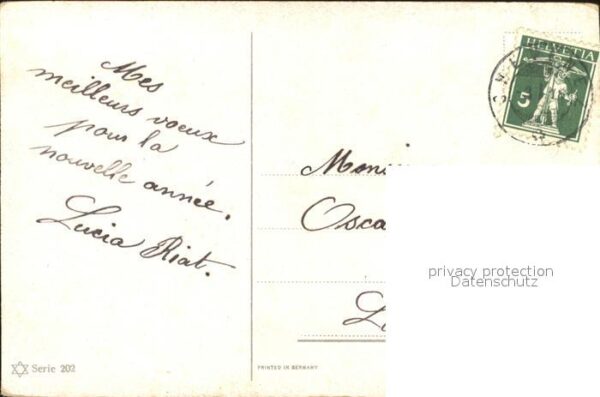 Mes
meilleurs voeux
pour la
nouvelle année.
Lucia Riat.
HELVETIA
5
Monsi
Osca
privacy protection
Datenschutz
Serie 202
PRINTED IN GERMANY